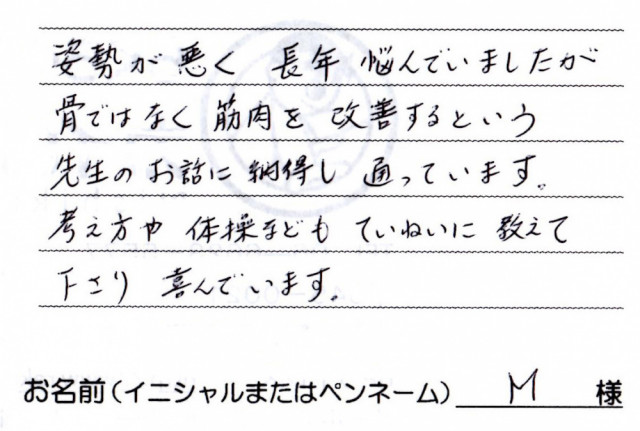 姿勢が悪く 長年 悩んでいましたが
骨ではなく 筋肉を 改善するという
先生の お話に 納得し 通っています。
考え方や 体操なども ていねいに 教えて
下さり 喜んでいます。
お名前(イニシャルまたはペンネーム) M 様